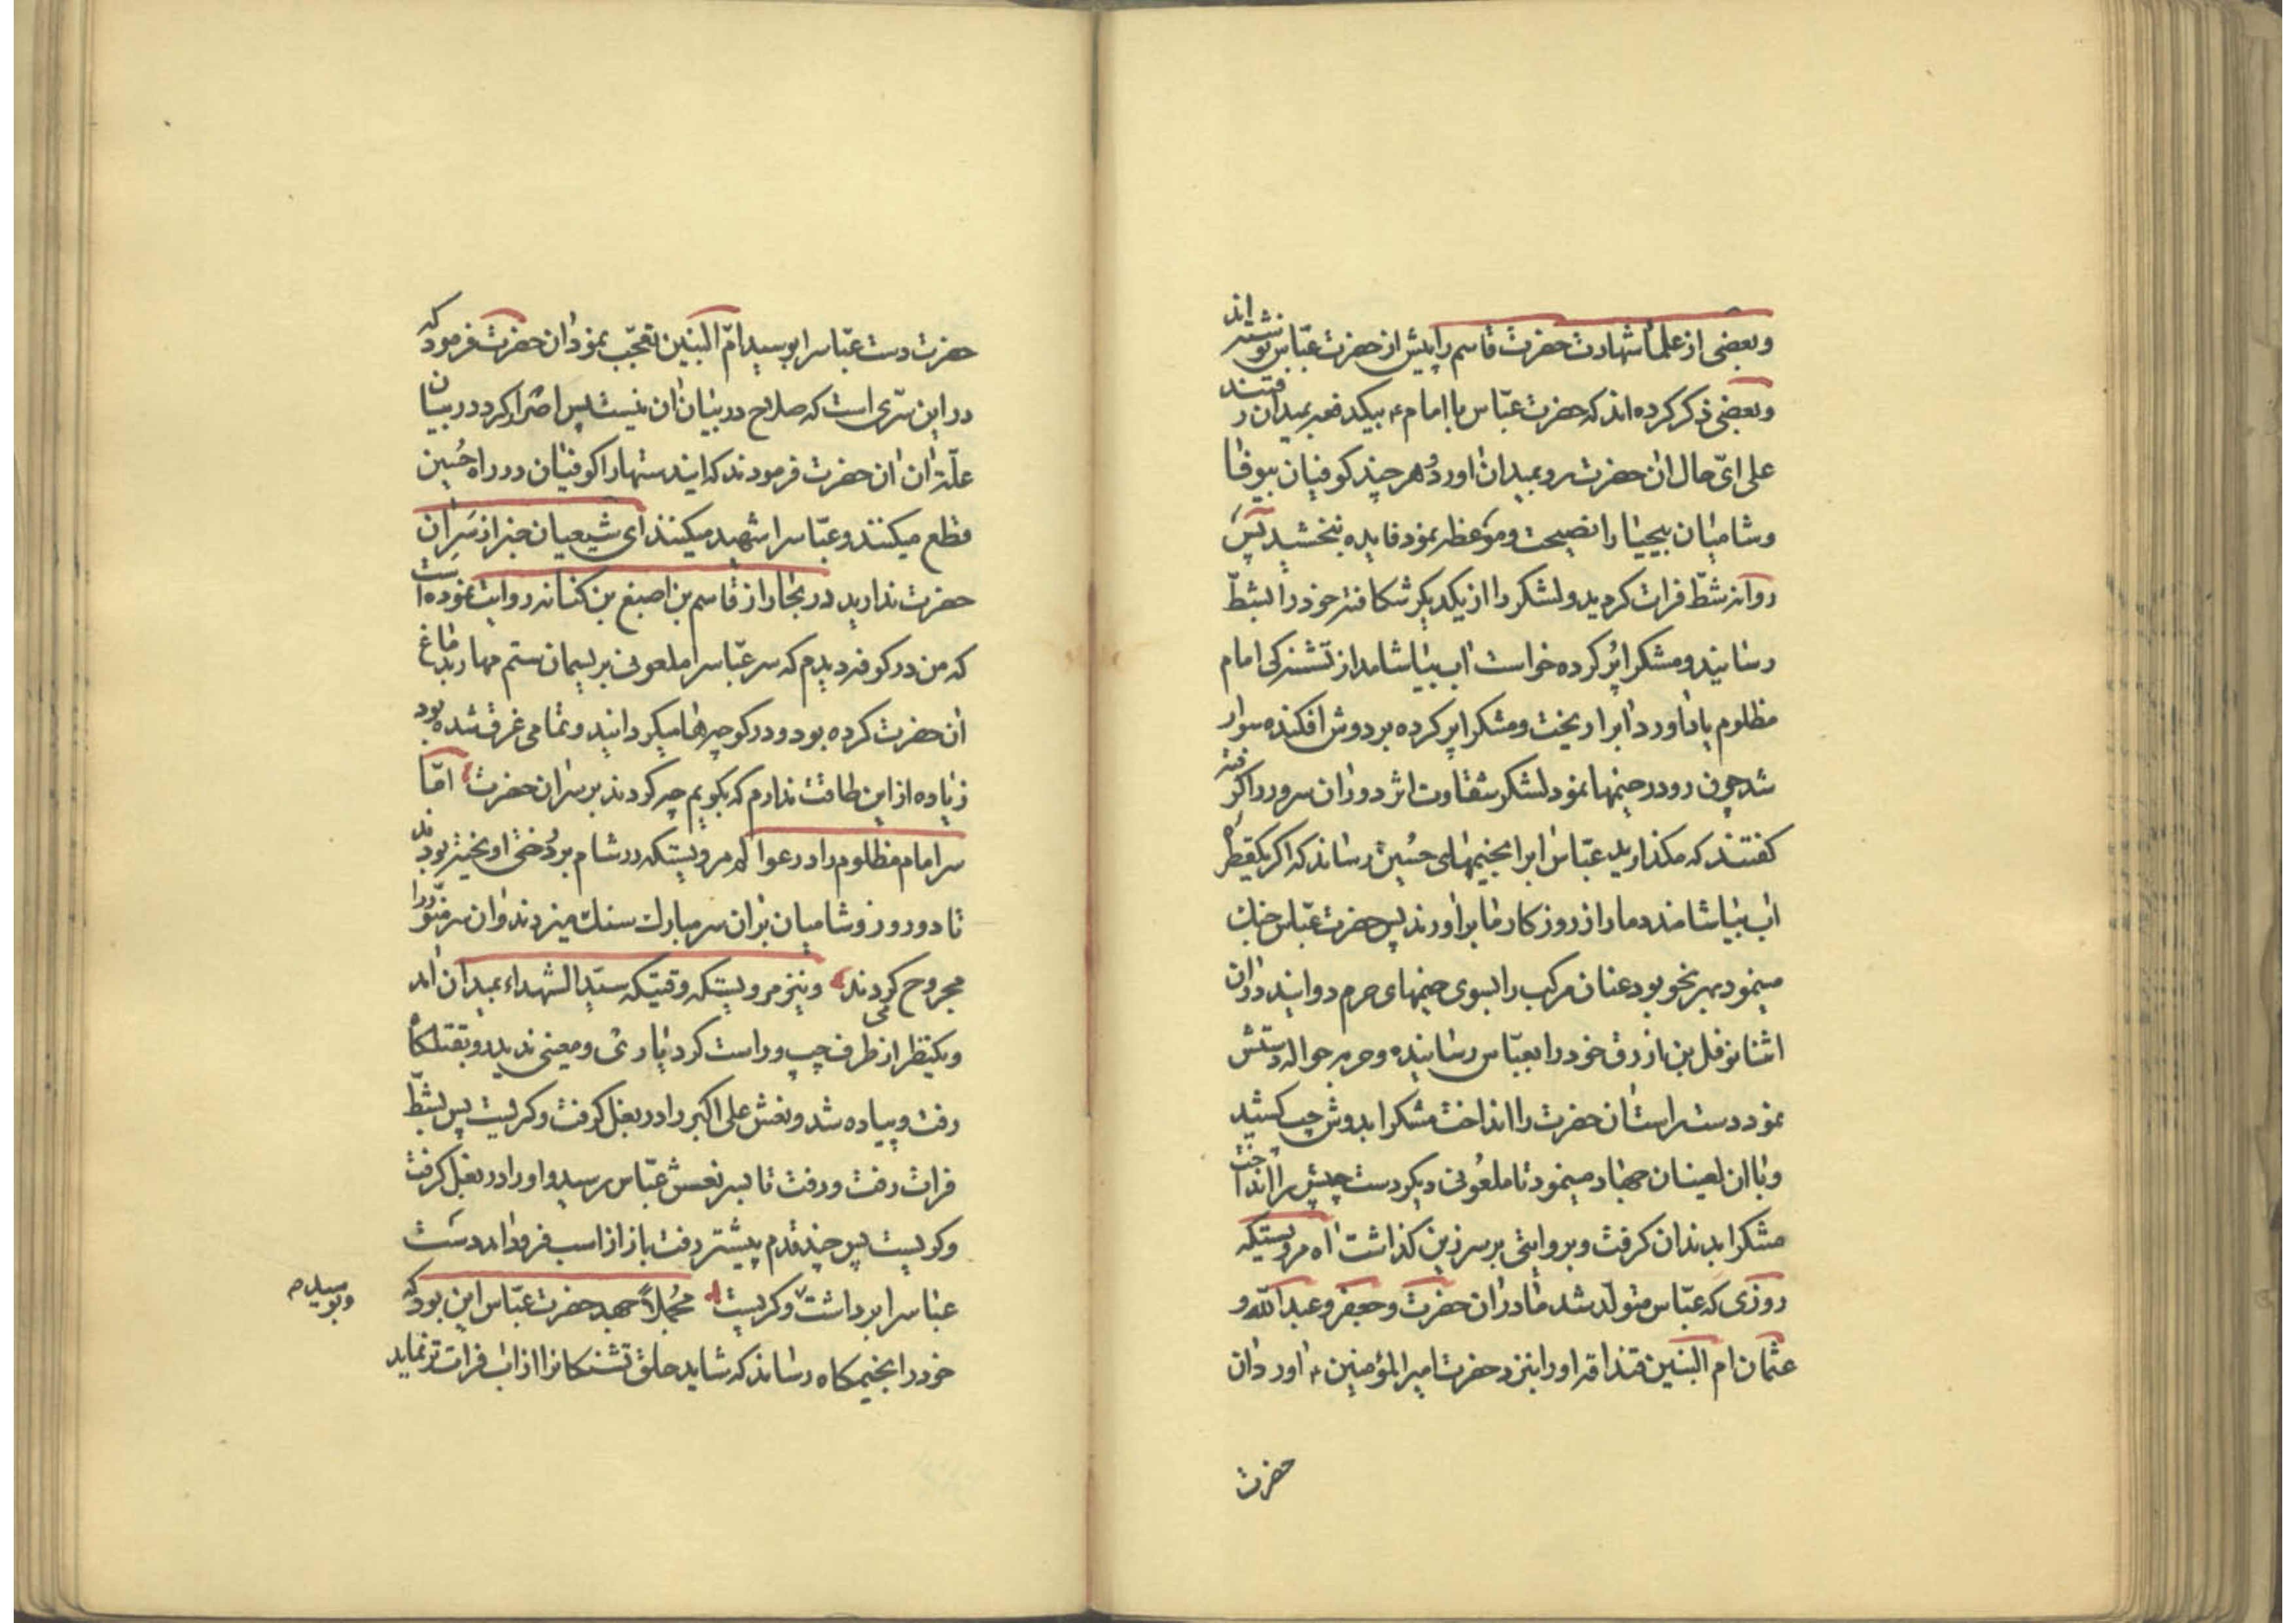 وبعضی از علما شهادت حضرت قاسم را پیش از حضرت عباس نوشته اند
وبعضی ذکر کرده اند که حضرت عباس با امام ء بیکدفعه بمیدان رفتند
علی ایّ حال ان حضرت رو بمیدان اورد هر چند کوفیان بیوفا
وشامیان بیحیا را نصیحت وموعظه نمود فایده نبخشید پس
روانه شطّ فرات کردید ولشکر را از یکدیکر شکافته خود را بشطّ
رسانید ومشکرا پُر کرده خواست اب بیاشامد از تشنه کی امام
مظلوم یاد اورد اب را ریخت ومشکرا پر کرده بر دوش افکنده سوار
شد چون رو در خیمها نمود لشکر شقاوت اثر دور ان سرور را کرفته
کفتند که مکذارید عباس اب را بخیمهای حسین رساند که اکر یکقطره
اب بیاشامند دمار از روزکار ما بر اورند پس حضرت عباس جنك
مینمود بهر نحو بود عنان مرکب را بسوی خیمهای حرم دوانید در ان
اثنا نوفل بن ازرق خود را بعباس رسانیده وحربه حواله دستش
نمود دست راست ان حضرت را انداخت مشکرا بدوش چپ کشید
وبا ان لعینان جهاد مینمود تا ملعونی دیکر دست چپش را انداخت
مشکرا بدندان کرفت وبروایتی بر سر زین کذاشت اه مرویستکه
روزی که عباس متولد شد مادر ان حضرت وجعفر وعبد الله و
عثمان ام البنین قنداقه او را بنزد حضرت امیر المؤمنین ء اورد ان
حضرت
حضرت دست عباسرا بوسید امّ البنین تعجّب نمود ان حضرت فرمود که
در این سرّی است که صلاح در بیان ان نیست پس اصرار کرد در بیان
علّة ان ان حضرت فرمودند که ایندستها را کوفیان در راه حُسین
قطع میکنند وعباسرا شهید میکنند ای شیعیان خبر از سَر ان
حضرت ندارید در بحار از قاسم بن اصبغ بن کنانه روایت نموده است
که من در کوفه دیدم که سر عباسرا ملعونی بریسمان ستم مهار بدماغ
ان حضرت کرده بود ودر کوچه ها میکردانید وتمامی غرق شده بود
زیاده از این طاقت ندارم که بکویم چه کردند بر سر ان حضرت امّا
سر امام مظلوم را در عوا لم مرویستکه در شام بر دُرختی اویخته بودند
تا دو روز وشامیان بر ان سر مبارك سنك میزدند وان سر منوّر را
مجروح کردند ونیز مرویستکه وقتیکه سیّد الشهداء بمیدان امد
ویکنظر از طرف چپ وراست کرد یاوری ومعینی ندید رو بقتلکاه
رفت وپیاده شد ونعش علی اکبر را در بغل کرفت وکریست پس بشطّ
فرات رفت ورفت تا بسر نعش عباس رسید واو را در بغل کرفت
وکریست پس چند قدم پیشتر رفت باز از اسب فرود امد دست
عباسرا برداشت وکریست مُجملاً جهد حضرت عباس این بود که
وبوسید م
خود را بخیمکاه رساند که شاید حلق تشنکانرا از اب فرات تر نماید